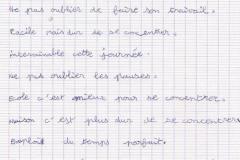 Ne pas oublier de faire son travail.
Facile mais dur de se concentrer.
Interminable cette journée.
Ne pas oublier les pauses.
Ecole c'est mieux pour se concentrer.
Maison c'est plus dur de se concentrer
Exploit du temps parfait.